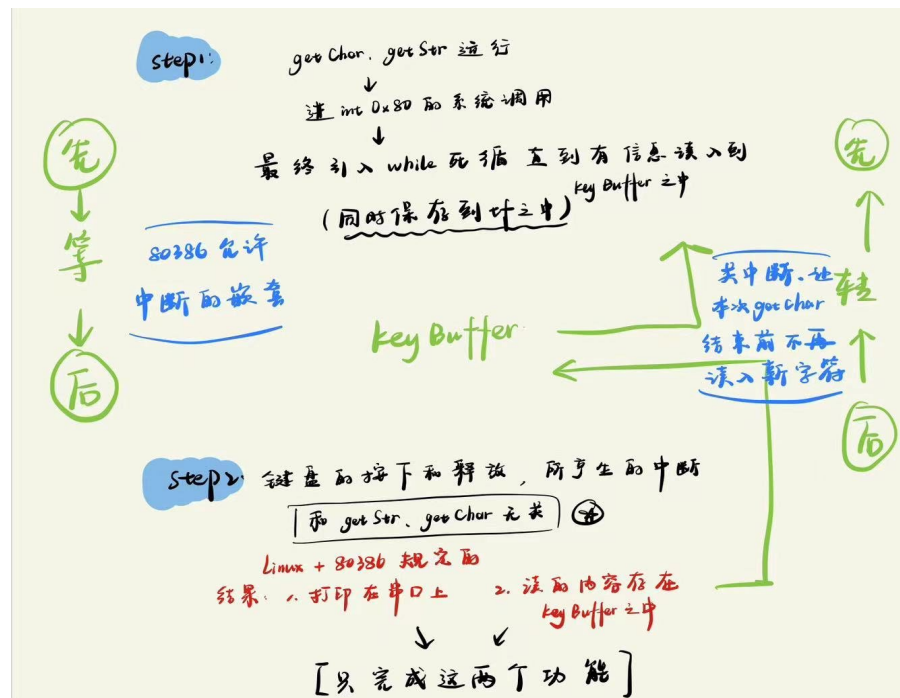 step1:
getChar、getStr 运行
进 int 0x80 的系统调用
最终引入 while 死循 直到有信息读入到
keyBuffer 之中
(同时保存到 tf 之中)
先
等
后
80386 允许
中断的嵌套
keyBuffer
关中断、让
本次 getChar
结束前不再
读入新字符
先
转
后
step2: 键盘的按下和释放，所产生的中断
和 getStr、getChar 无关
Linux + 80386 规定的
结果: 1. 打印在串口上 2. 读的内容存在
keyBuffer 之中
[只完成这两个功能]